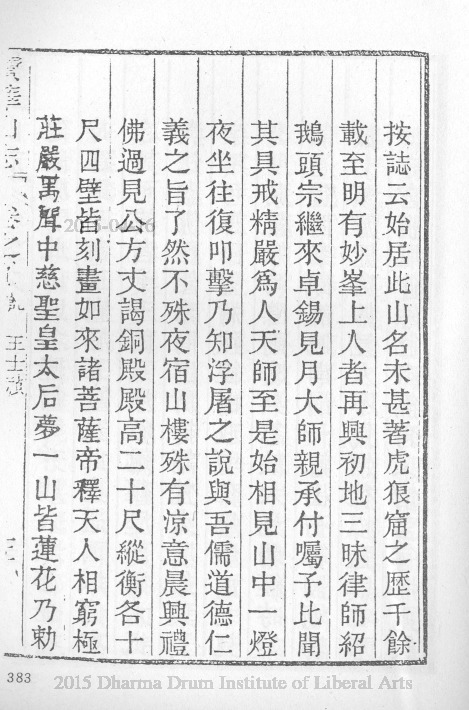 按誌云始居此山名未甚著虎狼窟之歷千餘
載至明有妙峯上人者再興初地三昧律師紹
鵝頭宗繼來卓錫見月大師親承付囑予比聞
其具戒精嚴為人天師至是始相見山中一燈
夜坐往復叩擊乃知浮屠之說與吾儒道德仁
義之旨了然不殊夜宿山樓殊有涼意晨興禮
佛過見公方丈謁銅殿殿高二十尺縱衡各十
尺四壁皆刻畫如來諸菩薩帝釋天人相窮極
莊嚴萬曆中慈聖皇太后夢一山皆蓮花乃勅
383
2015 Dharma Drum Institute of Liberal Arts